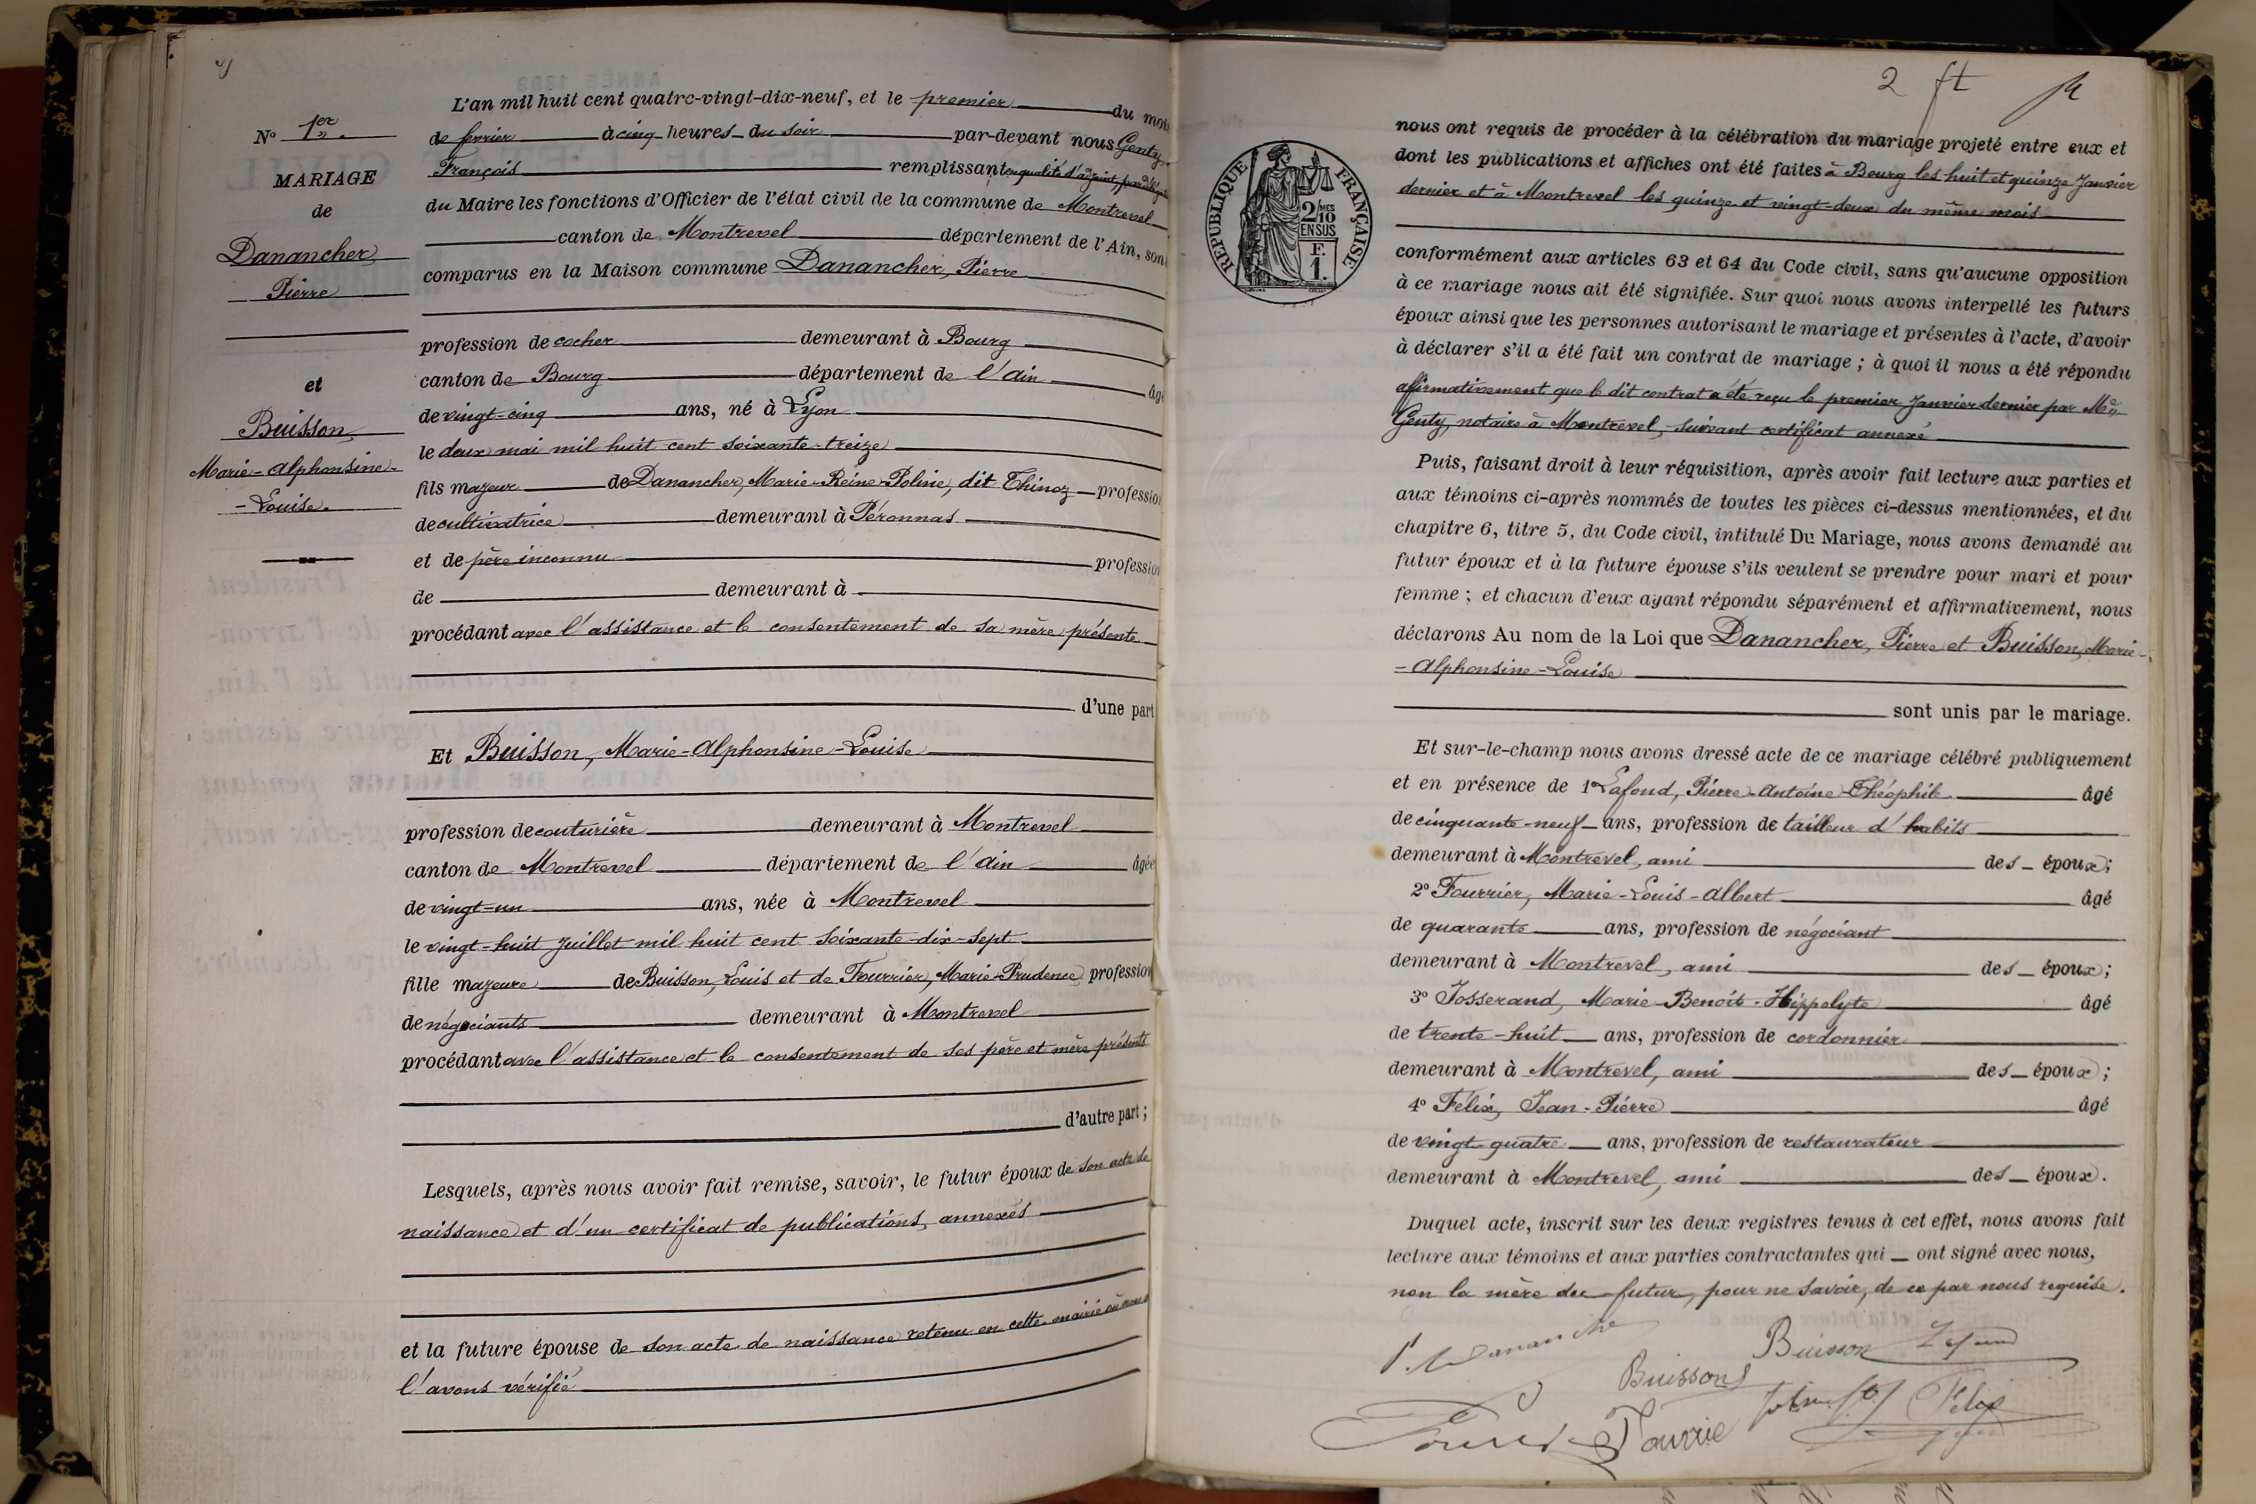 L'an mil huit cent quatre-vingt-dix-neuf, et le premier du mois
N° 1er
de fevrier à cinq heures du soir par-devant nous Genty
François remplissant en qualité d'adjoint, par délégation
MARIAGE
du Maire les fonctions d'Officier de l'état civil de la commune de Montrevel
de
canton de Montrevel département de l'Ain, sont
Danancher
comparus en la Maison commune Danancher, Pierre
Pierre
profession de cocher demeurant à Bourg
et
canton de Bourg département de l'Ain âgé
de vingt-cinq ans, né à Lyon
Buisson
le deux mai mil huit cent soixante-treize
Marie-Alphonsine-
fils majeur de Danancher, Marie-Reine-Poline, dit Thinoz profession
-Louise.
de cultivatrice demeurant à Péronnas
et de père inconnu profession
de demeurant à
procédant avec l'assistance et le consentement de sa mère présente
d'une part
Et Buisson, Marie-Alphonsine-Louise
profession de couturière demeurant à Montrevel
canton de Montrevel département de l'Ain âgée
de vingt-un ans, née à Montrevel
le vingt-huit juillet mil huit cent soixante-dix-sept
fille majeure de Buisson, Louis et de Fourrier, Marie-Prudence profession
de négociants demeurant à Montrevel
procédant avec l'assistance et le consentement de ses père et mère présents
d'autre part;
Lesquels, après nous avoir fait remise, savoir, le futur époux de son acte de
naissance et d'un certificat de publications, annexés
et la future épouse de son acte de naissance retenu en cette mairie où nous
l'avons vérifié
2 ft
RÉPUBLIQUE FRANÇAISE
2/10 MES
EN SUS
F.
1.
nous ont requis de procéder à la célébration du mariage projeté entre eux et
dont les publications et affiches ont été faites à Bourg les huit et quinze Janvier
dernier et à Montrevel les quinze et vingt-deux du même mois
conformément aux articles 63 et 64 du Code civil, sans qu'aucune opposition
à ce mariage nous ait été signifiée. Sur quoi nous avons interpellé les futurs
époux ainsi que les personnes autorisant le mariage et présentes à l'acte, d'avoir
à déclarer s'il a été fait un contrat de mariage ; à quoi il nous a été répondu
affirmativement que le dit contrat a été reçu le premier Janvier dernier par Me
Genty, notaire à Montrevel, suivant certificat annexé
Puis, faisant droit à leur réquisition, après avoir fait lecture aux parties et
aux témoins ci-après nommés de toutes les pièces ci-dessus mentionnées, et du
chapitre 6, titre 5, du Code civil, intitulé Du Mariage, nous avons demandé au
futur époux et à la future épouse s'ils veulent se prendre pour mari et pour
femme ; et chacun d'eux ayant répondu séparément et affirmativement, nous
déclarons Au nom de la Loi que Danancher, Pierre et Buisson, Marie-
-Alphonsine-Louise
sont unis par le mariage.
Et sur-le-champ nous avons dressé acte de ce mariage célébré publiquement
et en présence de 1° Lafond, Pierre-Antoine-Théophile âgé
de cinquante-neuf ans, profession de tailleur d'habits
demeurant à Montrevel, ami des époux;
2° Fourrier, Marie-Louis-Albert âgé
de quarante ans, profession de négociant
demeurant à Montrevel, ami des époux;
3° Josserand, Marie-Benoît-Hippolyte âgé
de trente-huit ans, profession de cordonnier
demeurant à Montrevel, ami des époux;
4° Félix, Jean-Pierre âgé
de vingt-quatre ans, profession de restaurateur
demeurant à Montrevel, ami des époux.
Duquel acte, inscrit sur les deux registres tenus à cet effet, nous avons fait
lecture aux témoins et aux parties contractantes qui ont signé avec nous,
non la mère du futur, pour ne savoir, de ce par nous requise.
P. Dananche
Buisson Lafond
Buisson
Félix
Fourrie